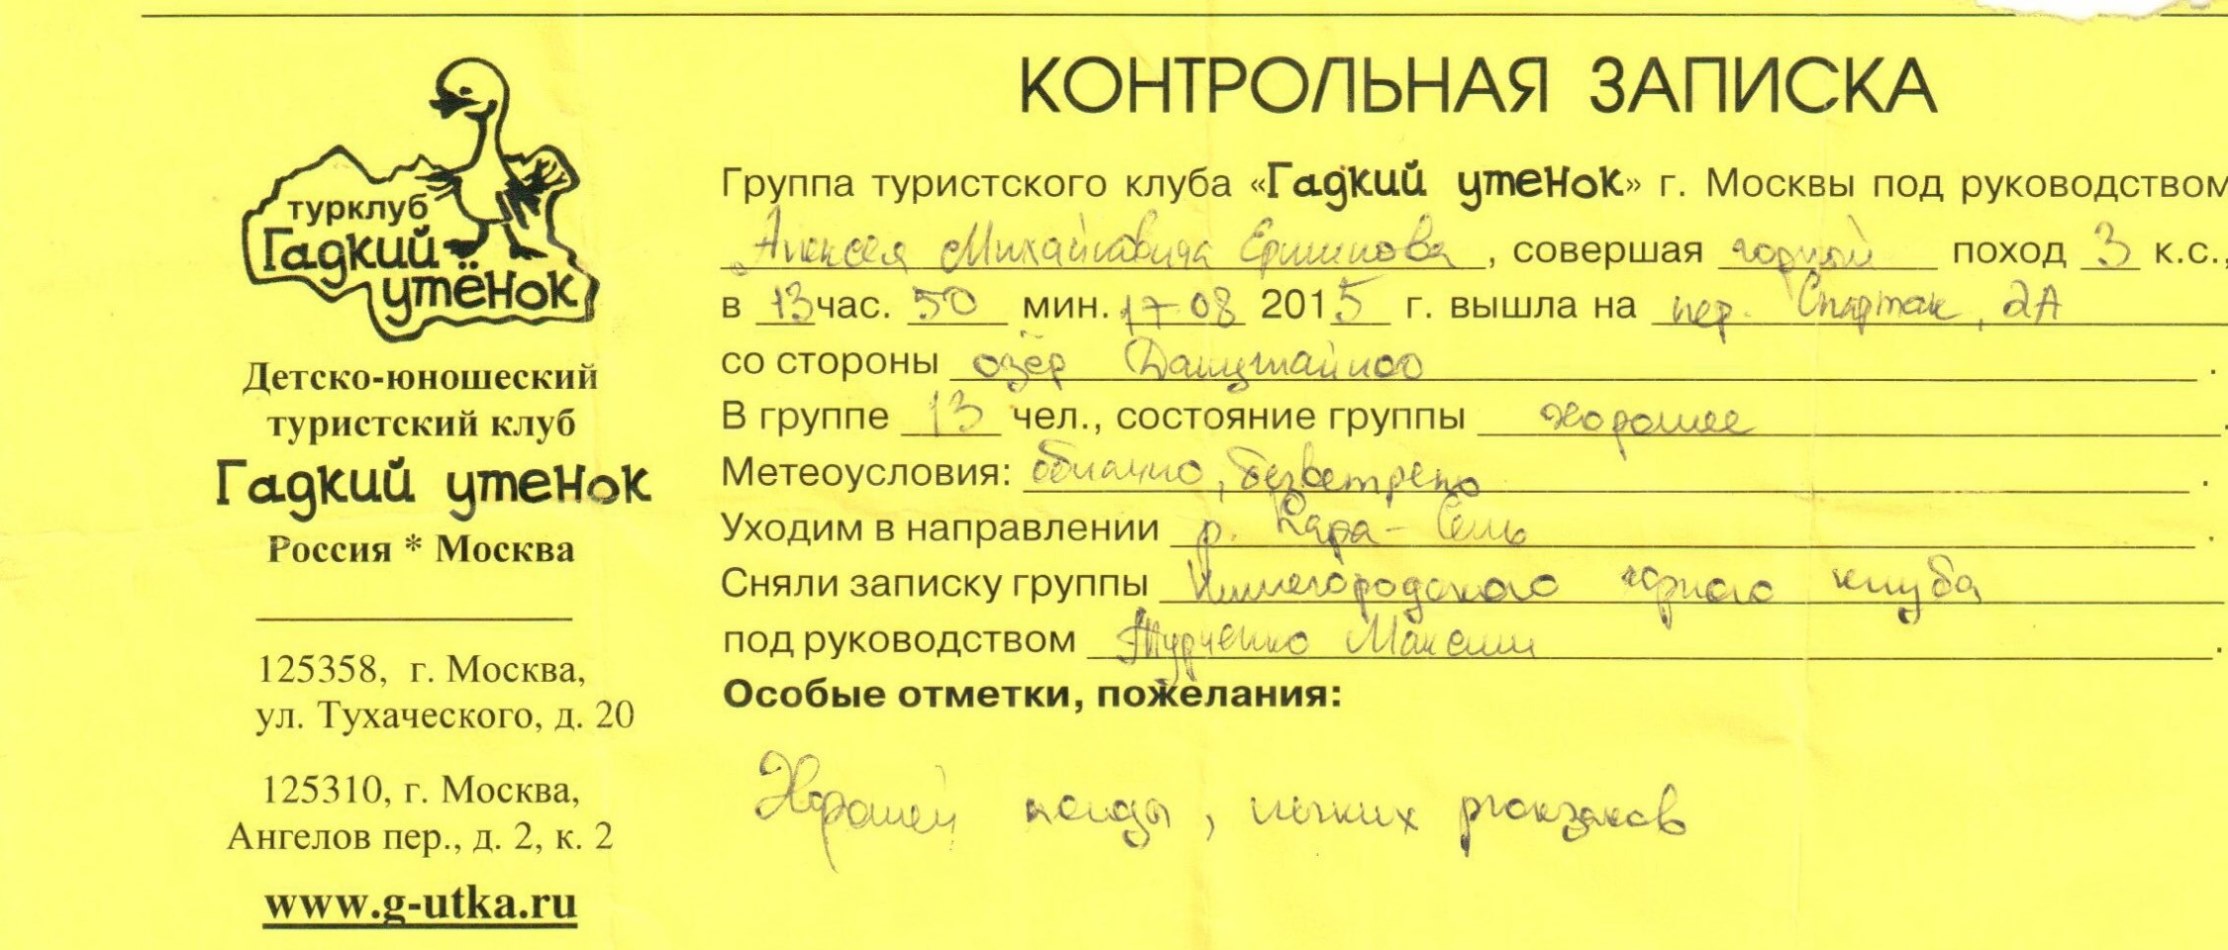 турклуб
Гадкий
утёнок
Детско-юношеский
туристский клуб
Гадкий утенок
Россия * Москва
125358, г. Москва,
ул. Тухаческого, д. 20
125310, г. Москва,
Ангелов пер., д. 2, к. 2
www.g-utka.ru
КОНТРОЛЬНАЯ ЗАПИСКА
Группа туристского клуба «Гадкий утенок» г. Москвы под руководством
Алексея Михайловича , совершая горный поход 3 к.с.,
в 13 час. 50 мин. 17-08 2015 г. вышла на пер. Спартак, 2А
со стороны озёр .
В группе 13 чел., состояние группы хорошее .
Метеоусловия: облачно, безветрено .
Уходим в направлении р. Кара- .
Сняли записку группы Нижегородского горного клуба
под руководством Максим .
Особые отметки, пожелания:
Хорошей погоды, легких рюкзаков